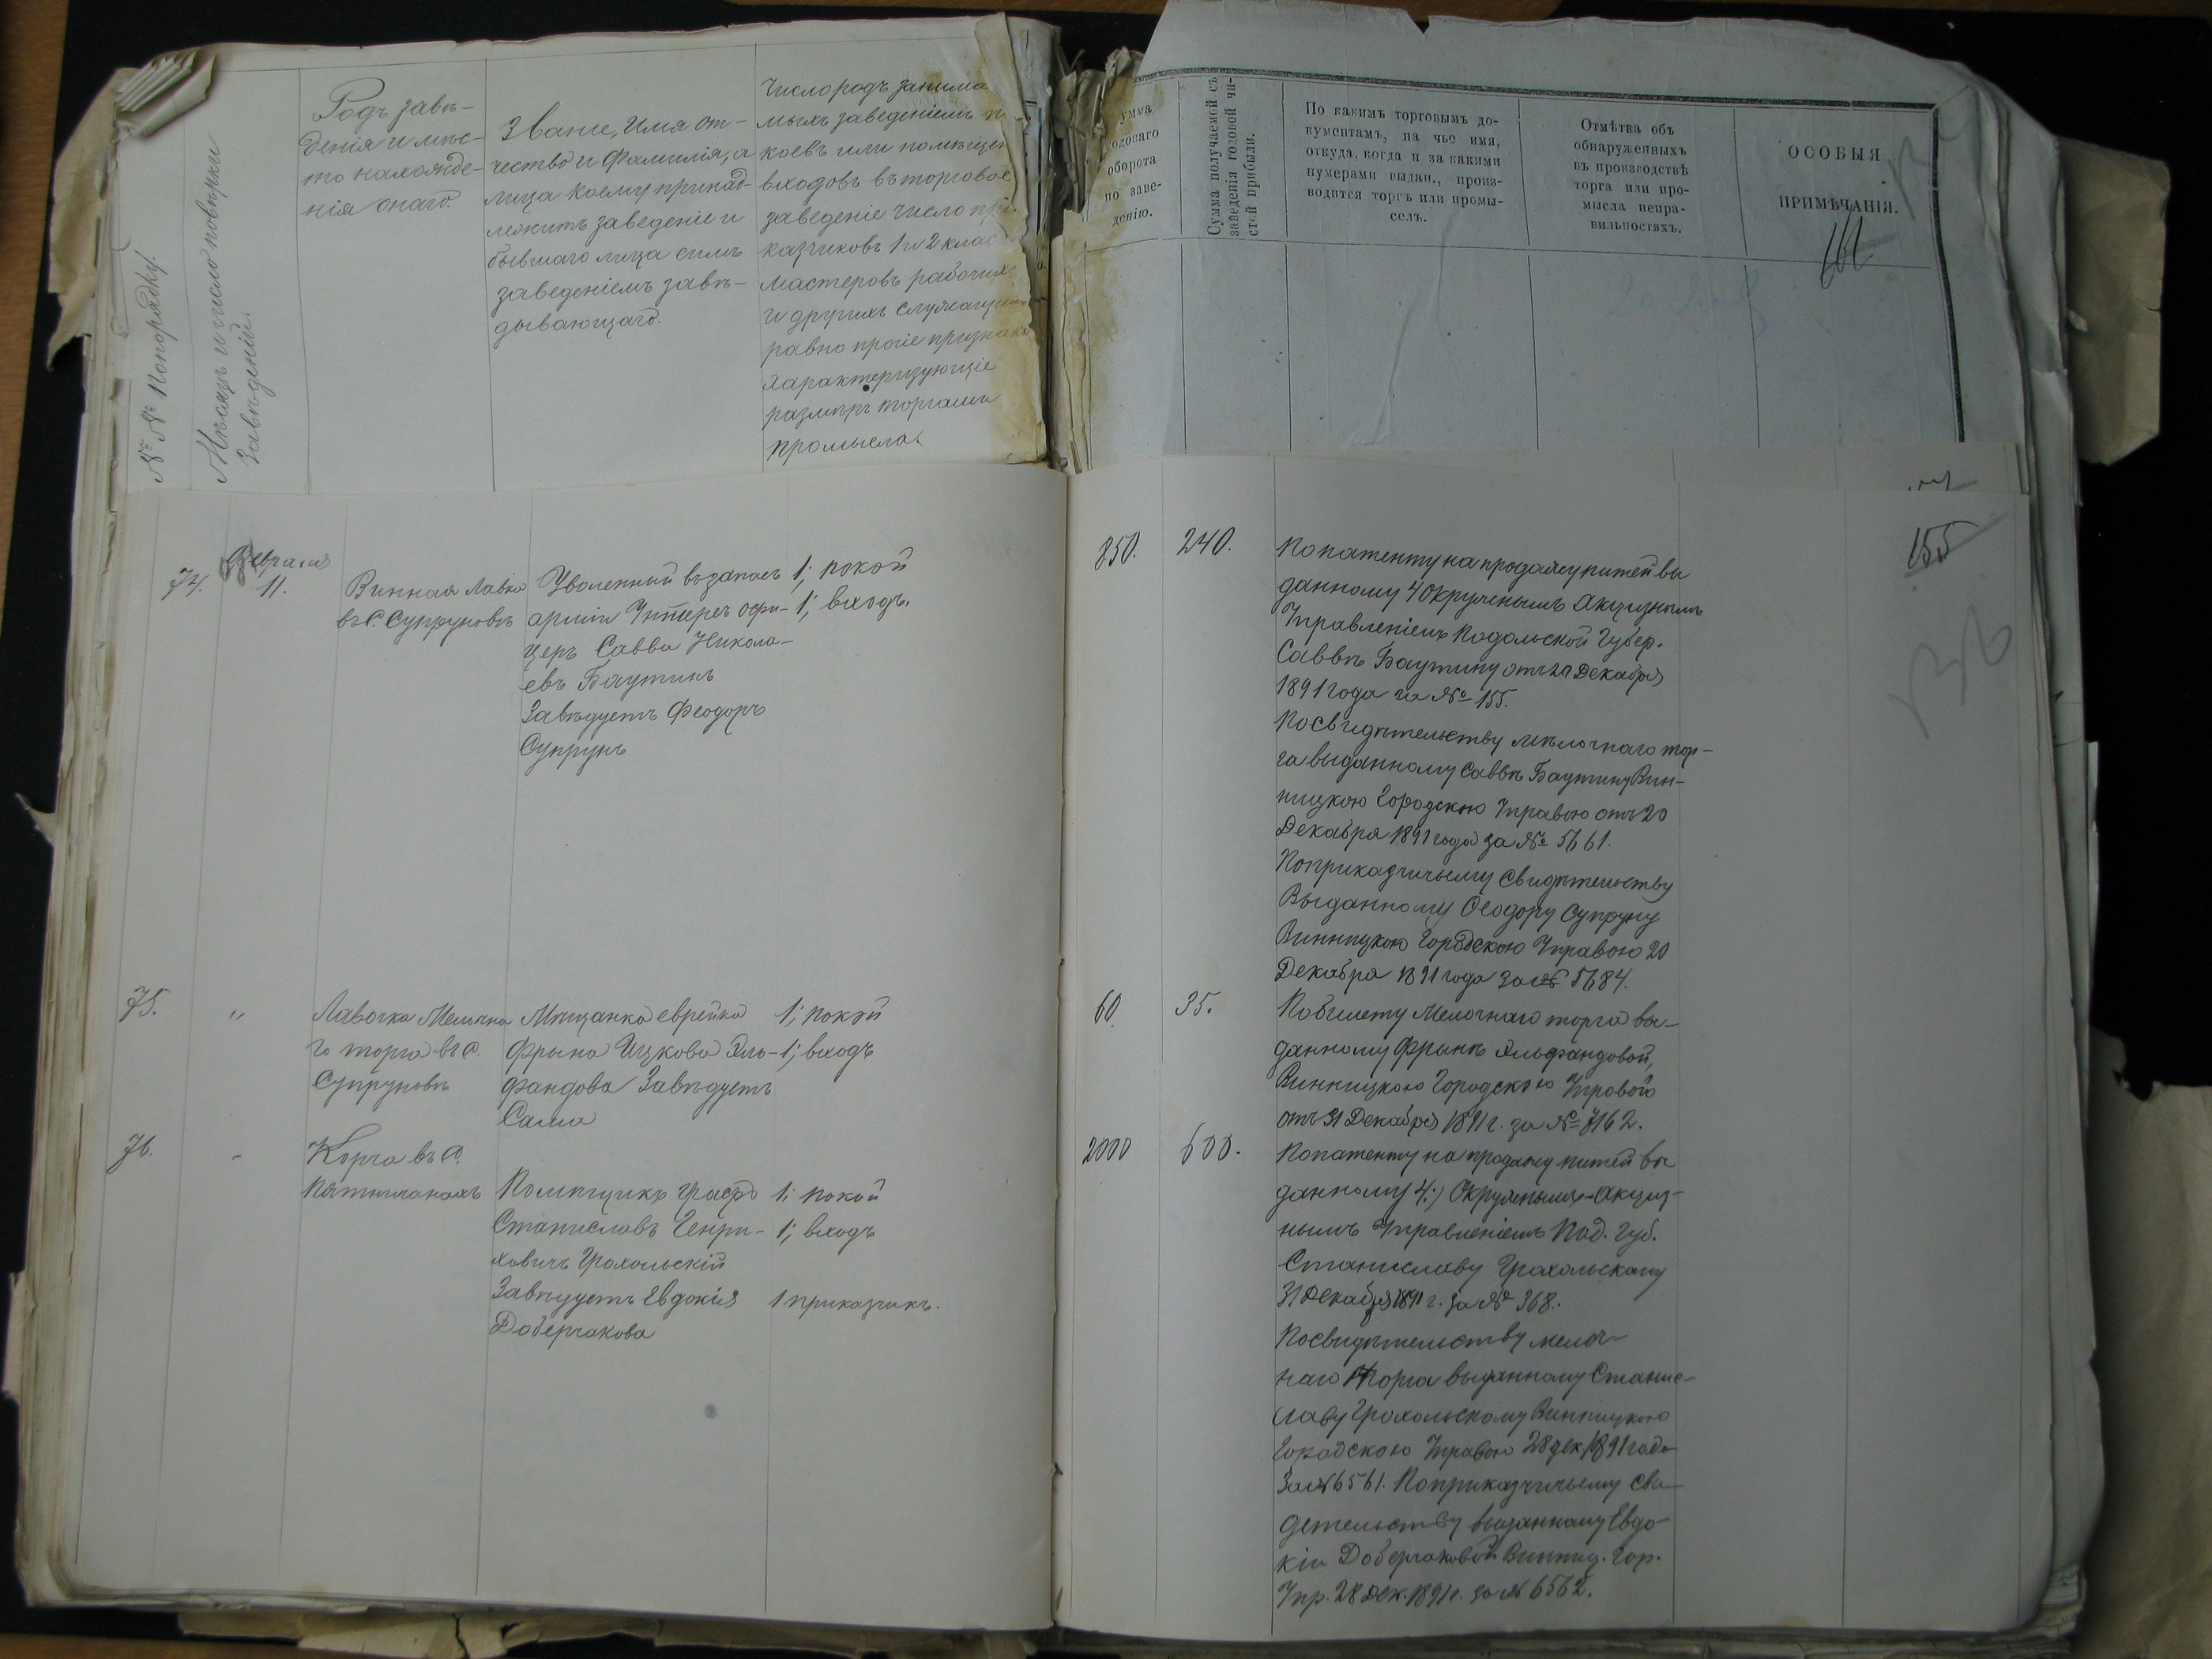 №№ попорядку.
Мѣсяцъ и число повѣрки
Заведеній.
Родъ заве-
денія и мѣс-
то нахожде-
нія онаго.
Званіе, Имя от-
чество и Фамилія, а
лица коему принад-
лежитъ заведеніе и
бывшаго лица симъ
заведеніемъ завѣ-
дывающаго.
Число родъ занима
мыхъ заведеніемъ п
коевъ или помѣщен
входовъ въ торговое
заведеніе число при
казчиковъ 1 и 2 клас
мастеровъ рабочих
и другихъ служащи
равно прочіе признак
характеризующіе
размѣръ торга или
промысла.
умма
одоваго
оборота
по заве-
денію.
Сумма получаемой съ
заведенія годовой чи-
стой прибыли.
По какимъ торговымъ до-
кументамъ, на чье имя,
откуда, когда и за какими
нумерами выдан., произ-
водится торгъ или промы-
селъ.
Отмѣтка объ
обнаруженныхъ
въ производствѣ
торга или про-
мысла непра-
вильностяхъ.
ОСОБЫЯ
ПРИМѢЧАНІЯ.
74.
Февраля
11.
Винная Лавка
въ С. Супруновѣ
Уволенный въ запасъ
арміи Унтеръ офи-
церъ Савва Никола-
евъ Баутинъ
Завѣдуетъ Феодоръ
Супрунъ
1; покой
1; входъ.
850.
240.
По патенту на продажу питей вы
данному 4 Окружнымъ Акцизнымъ
Управленіемъ Подольской Губер.
Саввѣ Баутину отъ 20 Декабря
1891 года за № 155.
Посвидѣтельству мѣлочнаго тор-
га выданному Саввѣ Баутину Вин-
ницкою Городскою Управою отъ 20
Декабря 1891 года за № 5661.
Поприказчичьему свидѣтельству
Выданному Феодору Супруну
Винницкою Городскою Управою 20
Декабря 1891 года за № 5684.
155
136
75.
"
Лавочка Мелочна
го торга въ С.
Супруновѣ
Мѣщанка еврейка
Фрына Ицкова Аль-
фандова Завѣдуетъ
Сама
1; покой
1; входъ
60.
35.
Побилету Мелочнаго торга вы-
данному Фрынѣ Альфандовой,
Винницкою Городскою Управою
отъ 31 Декабря 1891 г. за № 7162.
76.
"
Корча въ С.
Пятничанахъ
Помѣщикъ Графъ
Станиславъ Генри-
ховичъ Грохольскій
Завѣдуетъ Евдокія
Доберчакова
1; покой
1; входъ
1 приказчикъ.
2000
600.
Попатенту на продажу питей вы
данному 4:) Окружнымъ Акциз-
нымъ Управленіемъ Под. Губ.
Станиславу Грохольскому
31 Декабря 1891 г. за № 368.
Посвидѣтельству мелоч-
наго Торга выданному Станис-
лаву Грохольскому Винницкою
Городскою Управою 28 дек. 1891 года
За № 6561. Поприказчичьему сви-
детельству выданному Евдо-
кіи Доберчаковой Винниц. Гор.
Упр. 28 Дек. 1891 г. за № 6562.